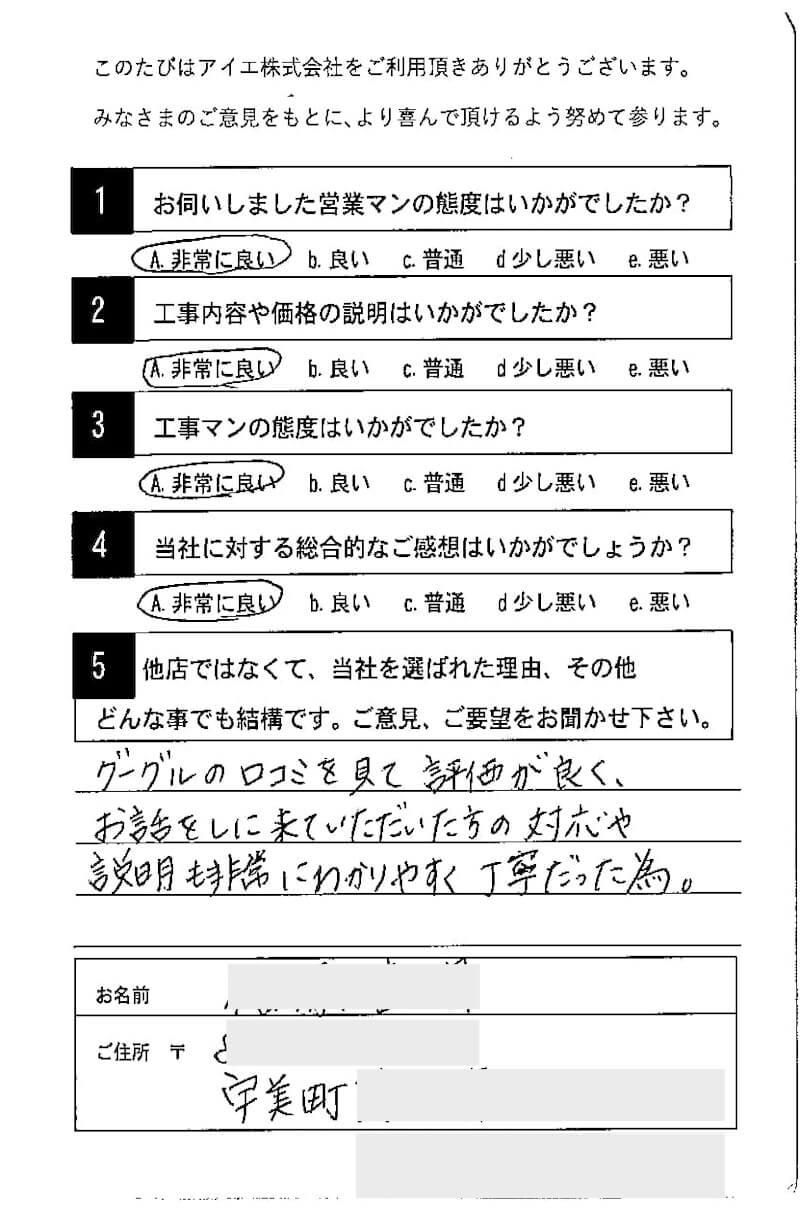 このたびはアイエ株式会社をご利用頂きありがとうございます。
みなさまのご意見をもとに、より喜んで頂けるよう努めて参ります。
1 お伺いしました営業マンの態度はいかがでしたか？
A. 非常に良い b. 良い c. 普通 d 少し悪い e. 悪い
2 工事内容や価格の説明はいかがでしたか？
A. 非常に良い b. 良い c. 普通 d 少し悪い e. 悪い
3 工事マンの態度はいかがでしたか？
A. 非常に良い b. 良い c. 普通 d 少し悪い e. 悪い
4 当社に対する総合的なご感想はいかがでしょうか？
A. 非常に良い b. 良い c. 普通 d 少し悪い e. 悪い
5 他店ではなくて、当社を選ばれた理由、その他
どんな事でも結構です。ご意見、ご要望をお聞かせ下さい。
グーグルの口コミを見て評価が良く、
お話をしに来ていただいた方の対応や
説明も非常にわかりやすく丁寧だった為。
お名前
ご住所 〒
宇美町